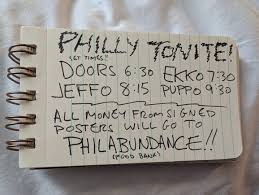 PHILLY TONITE!
(SET TIMES!)
DOORS 6:30 EKKO 7:30
JEFFO 8:15 PUPPO 9:30
ALL MONEY FROM SIGNED
POSTERS WILL GO TO
PHILABUNDANCE!!
(FOOD BANK)